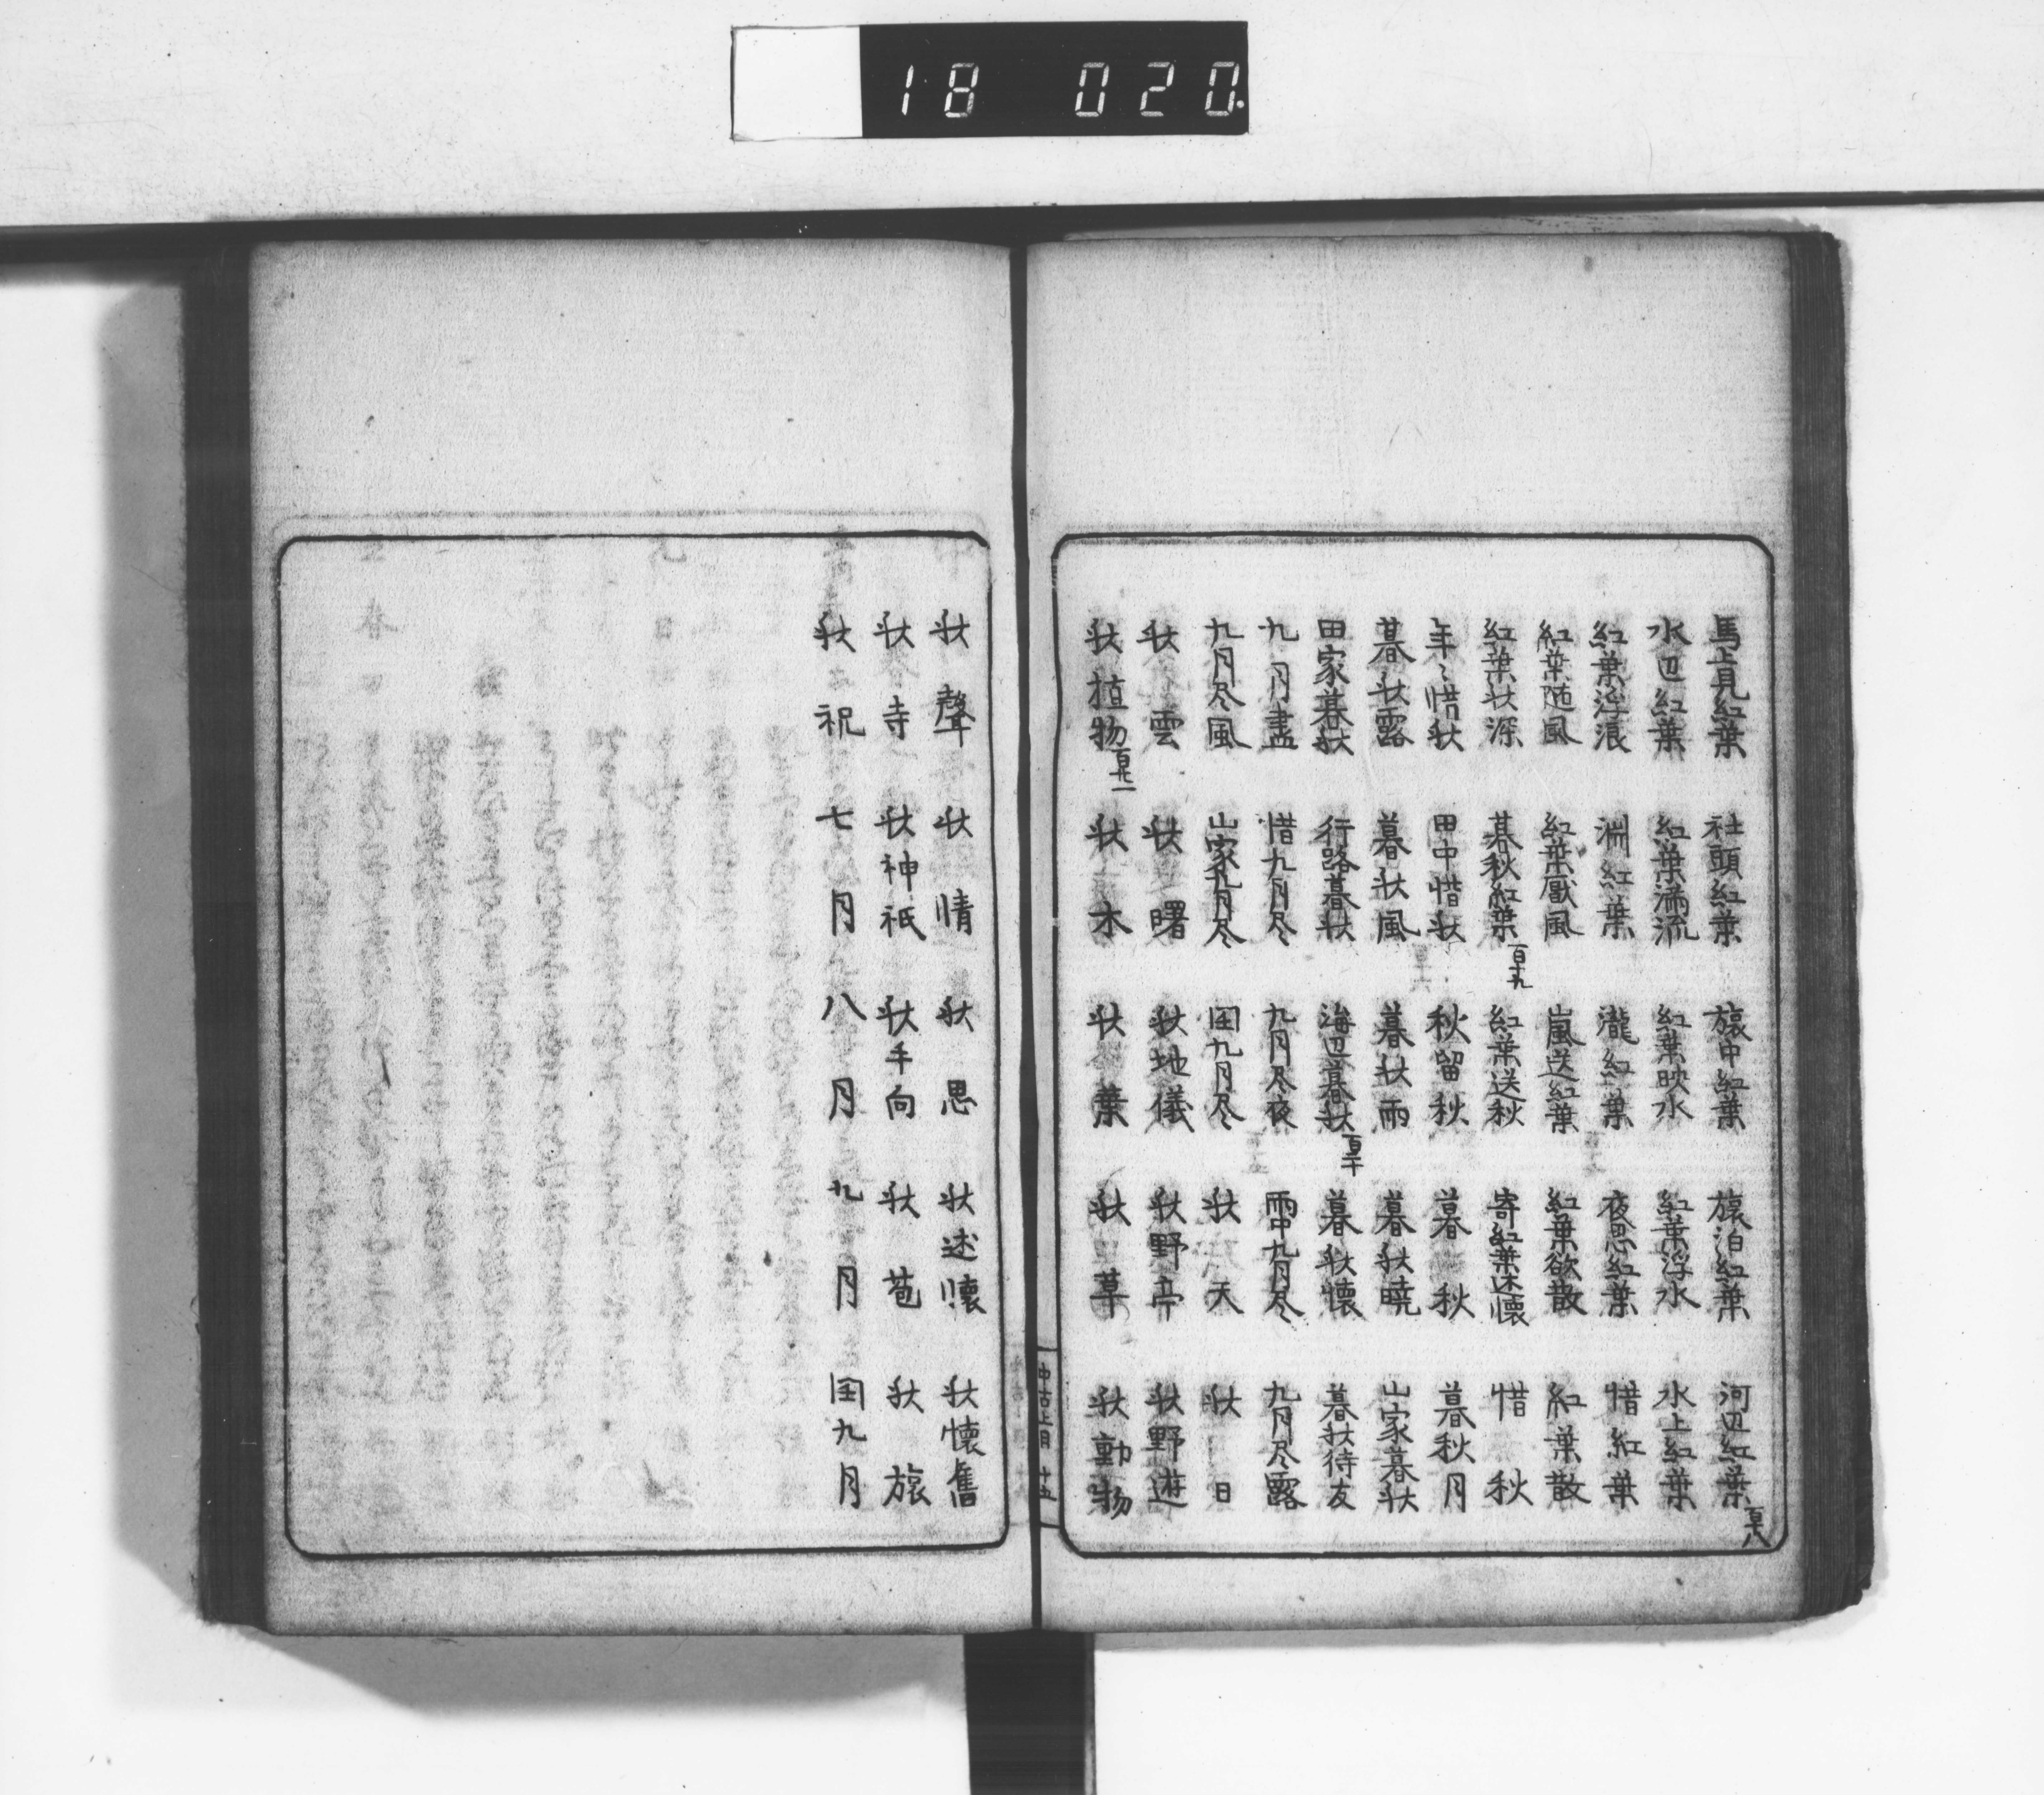 18 020
馬上見紅葉 社頭紅葉 旅中紅葉 旅泊紅葉 河辺紅葉 百十八
水辺紅葉 紅葉満流 紅葉映水 紅葉浮水 水上紅葉
紅葉泛浪 淵紅葉 瀧紅葉 夜思紅葉 惜紅葉
紅葉随風 紅葉厭風 嵐送紅葉 紅葉欲散 紅葉散
紅葉秋深 暮秋紅葉 百十九 紅葉送秋 寄紅葉述懐 惜秋
年〻惜秋 田中惜秋 秋留秋 暮秋 暮秋月
暮秋露 暮秋風 暮秋雨 暮秋暁 山家暮秋
田家暮秋 行路暮秋 海辺暮秋 百二十 暮秋懐 暮秋待友
九月盡 惜九月尽 九月尽夜 雨中九月尽 九月尽露
九月尽風 山家九月尽 閏九月尽 秋天 秋日
秋雲 秋曙 秋地儀 秋野亭 秋野遊
秋植物 秋木 秋葉 秋草 秋動物
十五
秋聲 秋情 秋思 秋述懐 秋懐舊
秋寺 秋神祇 秋手向 秋苞 秋旅
秋祝 七月 八月 九月 閏九月